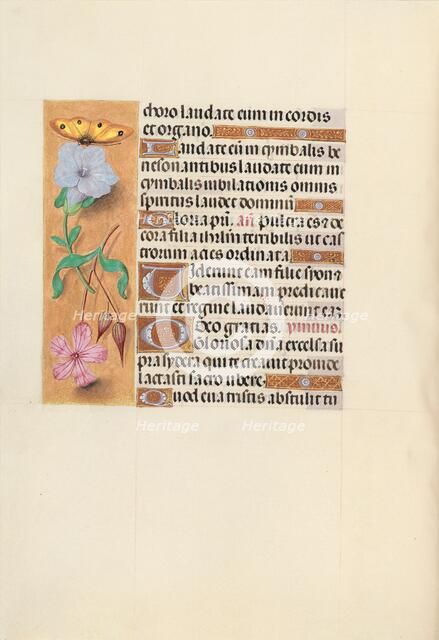 choro laudate eum in cordis
et organo.
Laudate eū in cymbalis be
nesonantibus laudate eum in
cymbalis iubilationis omnis
spiritus laudet dominū
Gloria pr̄i. añ. Pulcra es ⁊ de
cora filia ihrl̄m terribilis ut cas
trorum acies ordinata
Uiderunt eam filie syon ⁊
beatissimam predicaue
runt et regine laudauerunt eaz
Deo gratias. ymnus.
O Gloriosa dn̄a excelsa su
pra sydera qui te creauit prouide
lactasti sacro ubere.
Quod eua tristis abstulit tu
Heritage Heritage
Heritage Heritage
Heritage Heritage